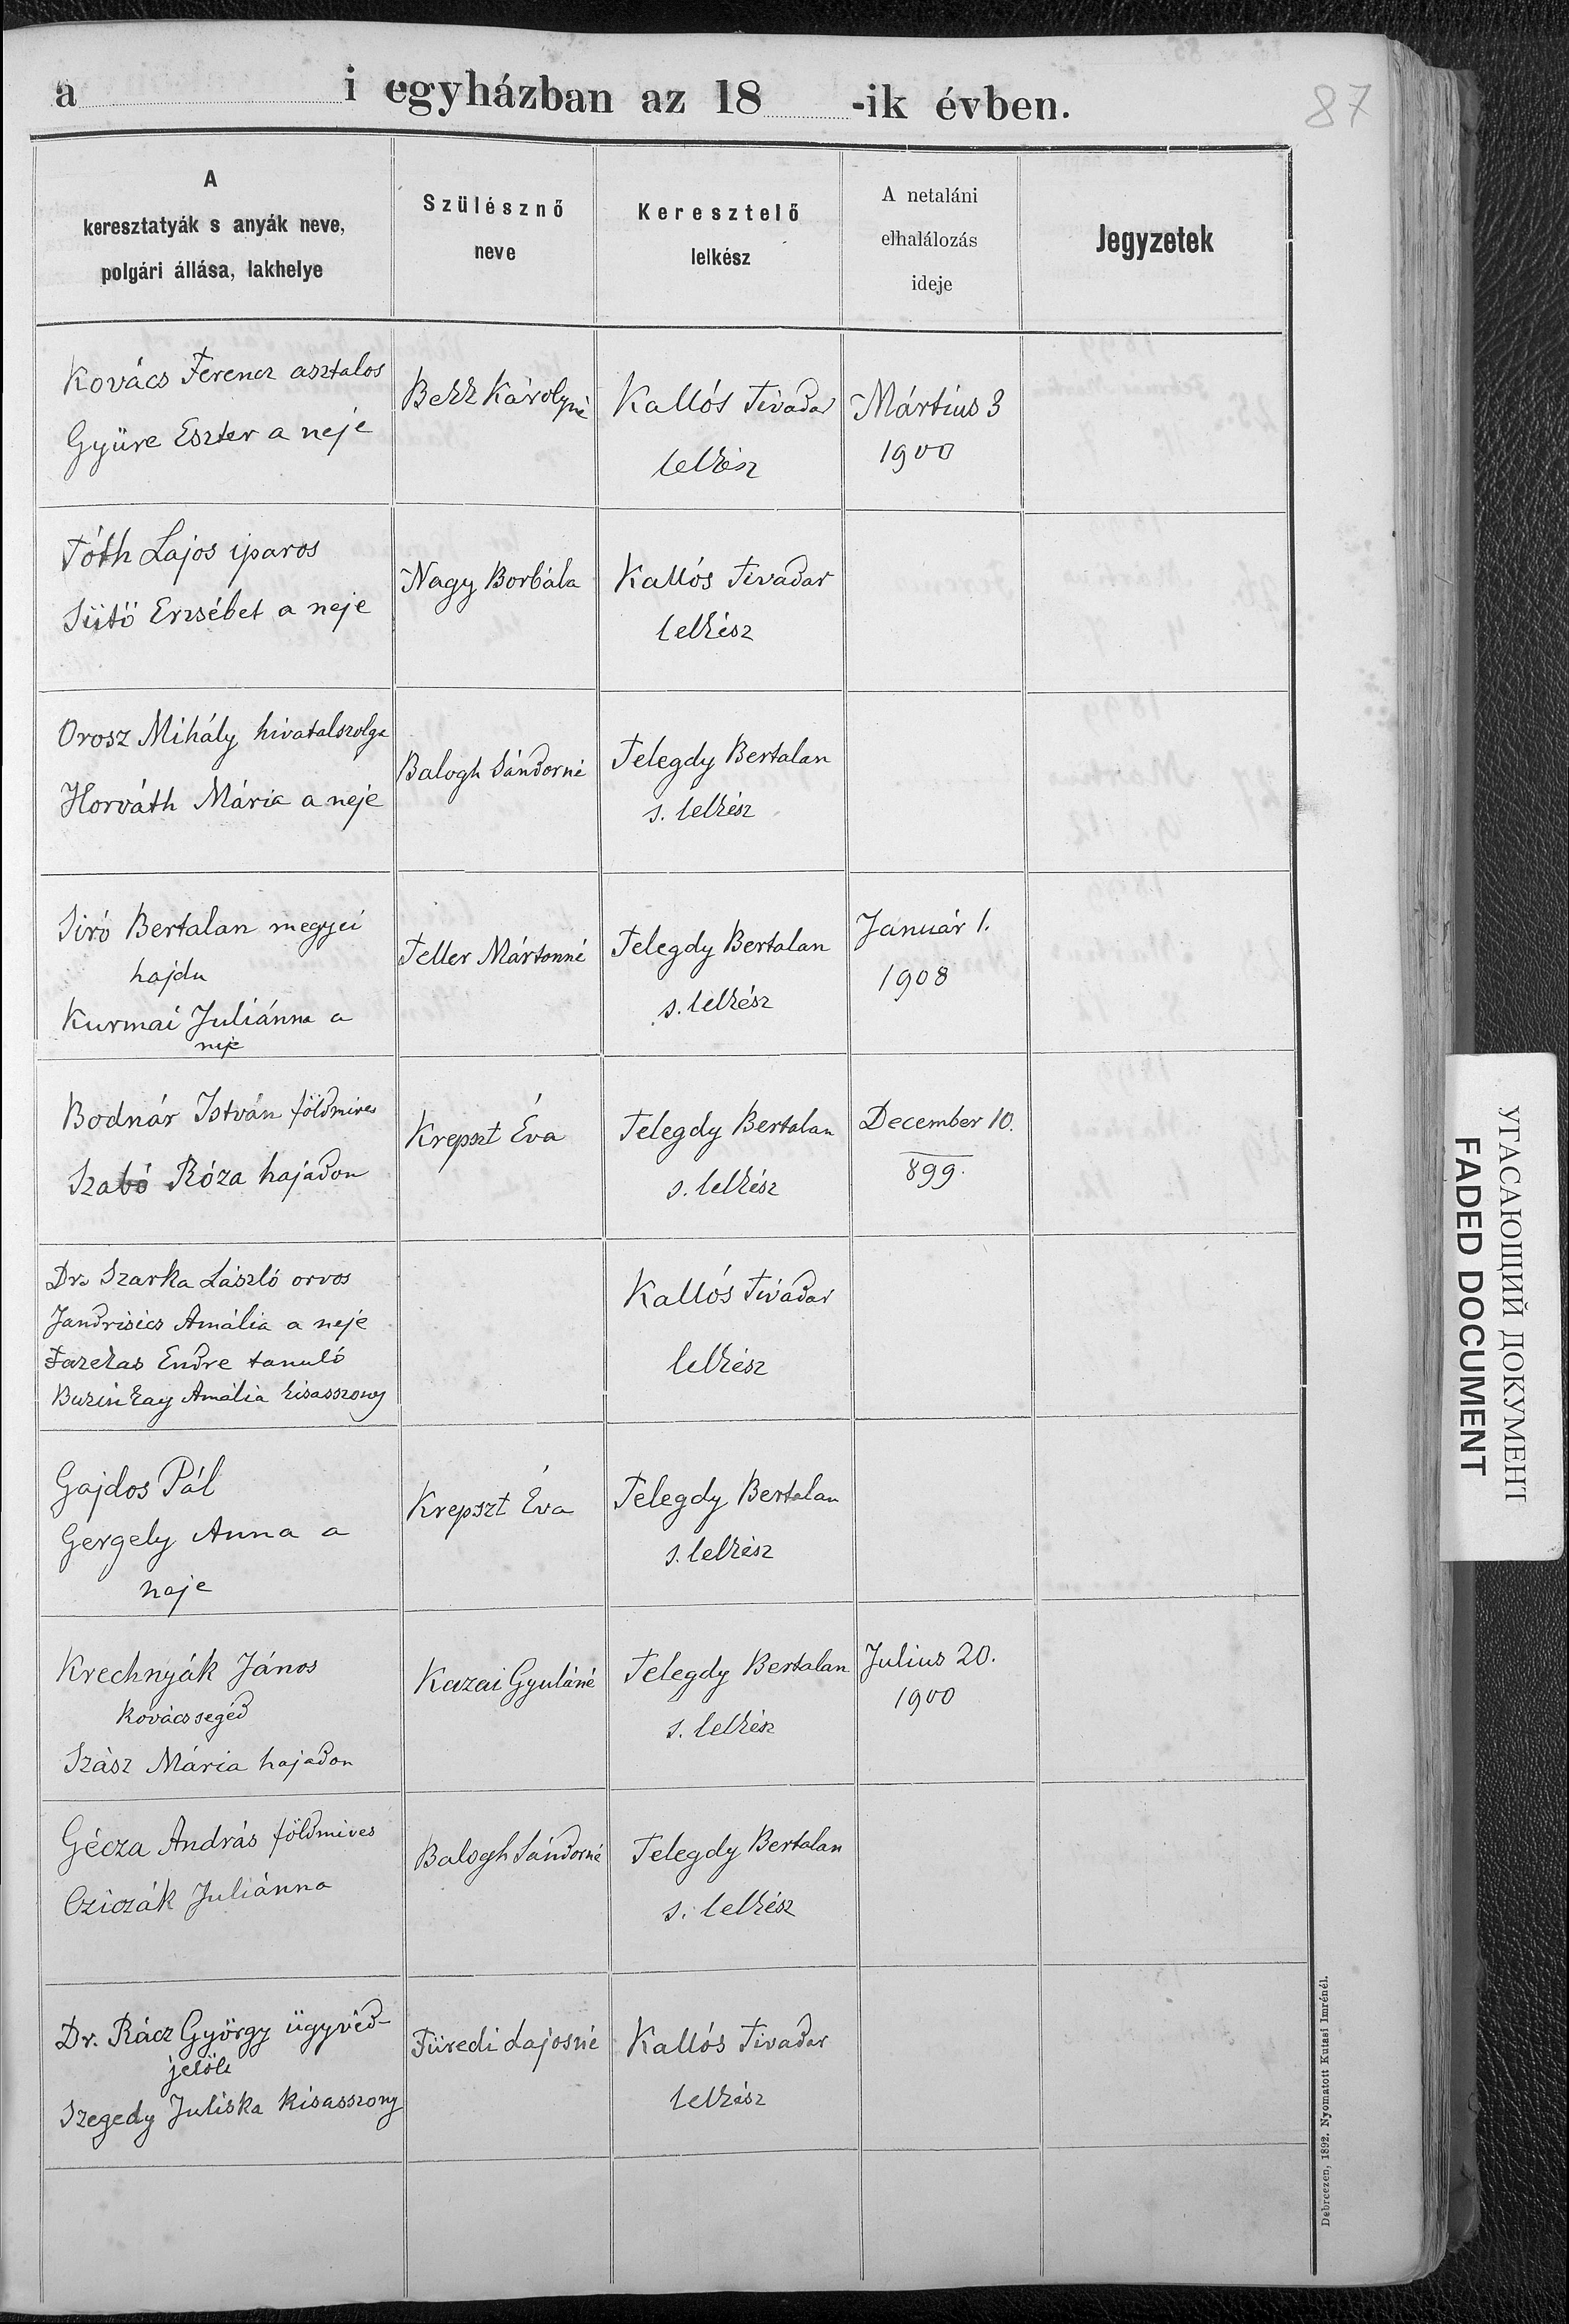 a i egyházban az 18 -ik évben.
87
A
keresztatyák s anyák neve,
polgári állása, lakhelye
Szülésznő
neve
Keresztelő
lelkész
A netaláni
elhalálozás
ideje
Jegyzetek
Kovács Ferencz asztalos
Gyüre Eszter a neje
Bekk Károlyné
Kallós Tivadar
lelkész
Mártius 3
1900
Tóth Lajos iparos
Sütő Erzsébet a neje
Nagy Borbála
Kallós Tivadar
lelkész
Orosz Mihály hivatalszolga
Horváth Mária a neje
Balogh Sándorné
Telegdy Bertalan
s. lelkész
Siró Bertalan megyei
hajdu
Kurmai Juliánna a
neje
Teller Mártonné
Telegdy Bertalan
s. lelkész
Január 1.
1908
Bodnár István földmives
Szabó Róza hajadon
Krepszt Éva
Telegdy Bertalan
s. lelkész
December 10.
899.
Dr. Szarka László orvos
Jandrisics Amália a neje
Fazekas Endre tanuló
Buzinkay Amália kisasszony
Kallós Tivadar
lelkész
Gajdos Pál
Gergely Anna a
neje
Krepszt Éva
Telegdy Bertalan
s. lelkész
Krechnyák János
kovácssegéd
Szász Mária hajadon
Kazai Gyuláné
Telegdy Bertalan
s. lelkész
Julius 20.
1900
Gécza András földmives
Cziczák Juliánna
Balogh Sándorné
Telegdy Bertalan
s. lelkész
Dr. Rácz György ügyvéd-
jelölt
Szegedy Juliska kisasszony
Füredi Lajosné
Kallós Tivadar
lelkész
Debreczen, 1892. Nyomatott Kutasi Imrénél.
УГАСАЮЩИЙ ДОКУМЕНТ
FADED DOCUMENT